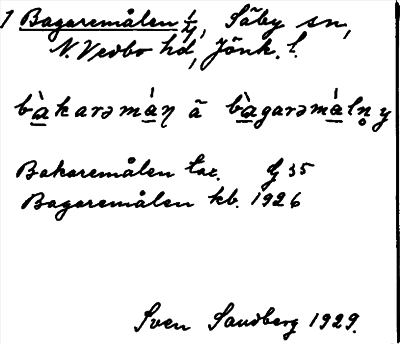 1 Bagaremålen 1/4, Säby sn,
N. Vedbo hd, Jönk. l.
bàkarəmán ā bàgarəmàln y
Bakaremålen tax. 35
Bagaremålen kb. 1926
Sven Sandberg 1929.